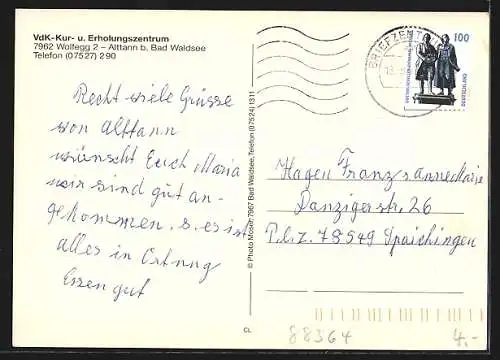 VdK-Kur- u. Erholungszentrum
7962 Wolfegg 2 – Alttann b. Bad Waldsee
Telefon (07527) 2 90
Recht viele Grüsse
von Alttann
wünscht Euch Maria
wir sind gut an-
gekommen, s. es ist
alles in Ortnung
Essen gut
© Photo Moser, 7967 Bad Waldsee, Telefon (07524) 1311
CL
BRIEFZENTRUM
100
DEUTSCHLAND
Hagen Franz u. Annemarie
Danzigerstr. 26
P.l.z. 78549 Spaichingen
88364
4,-